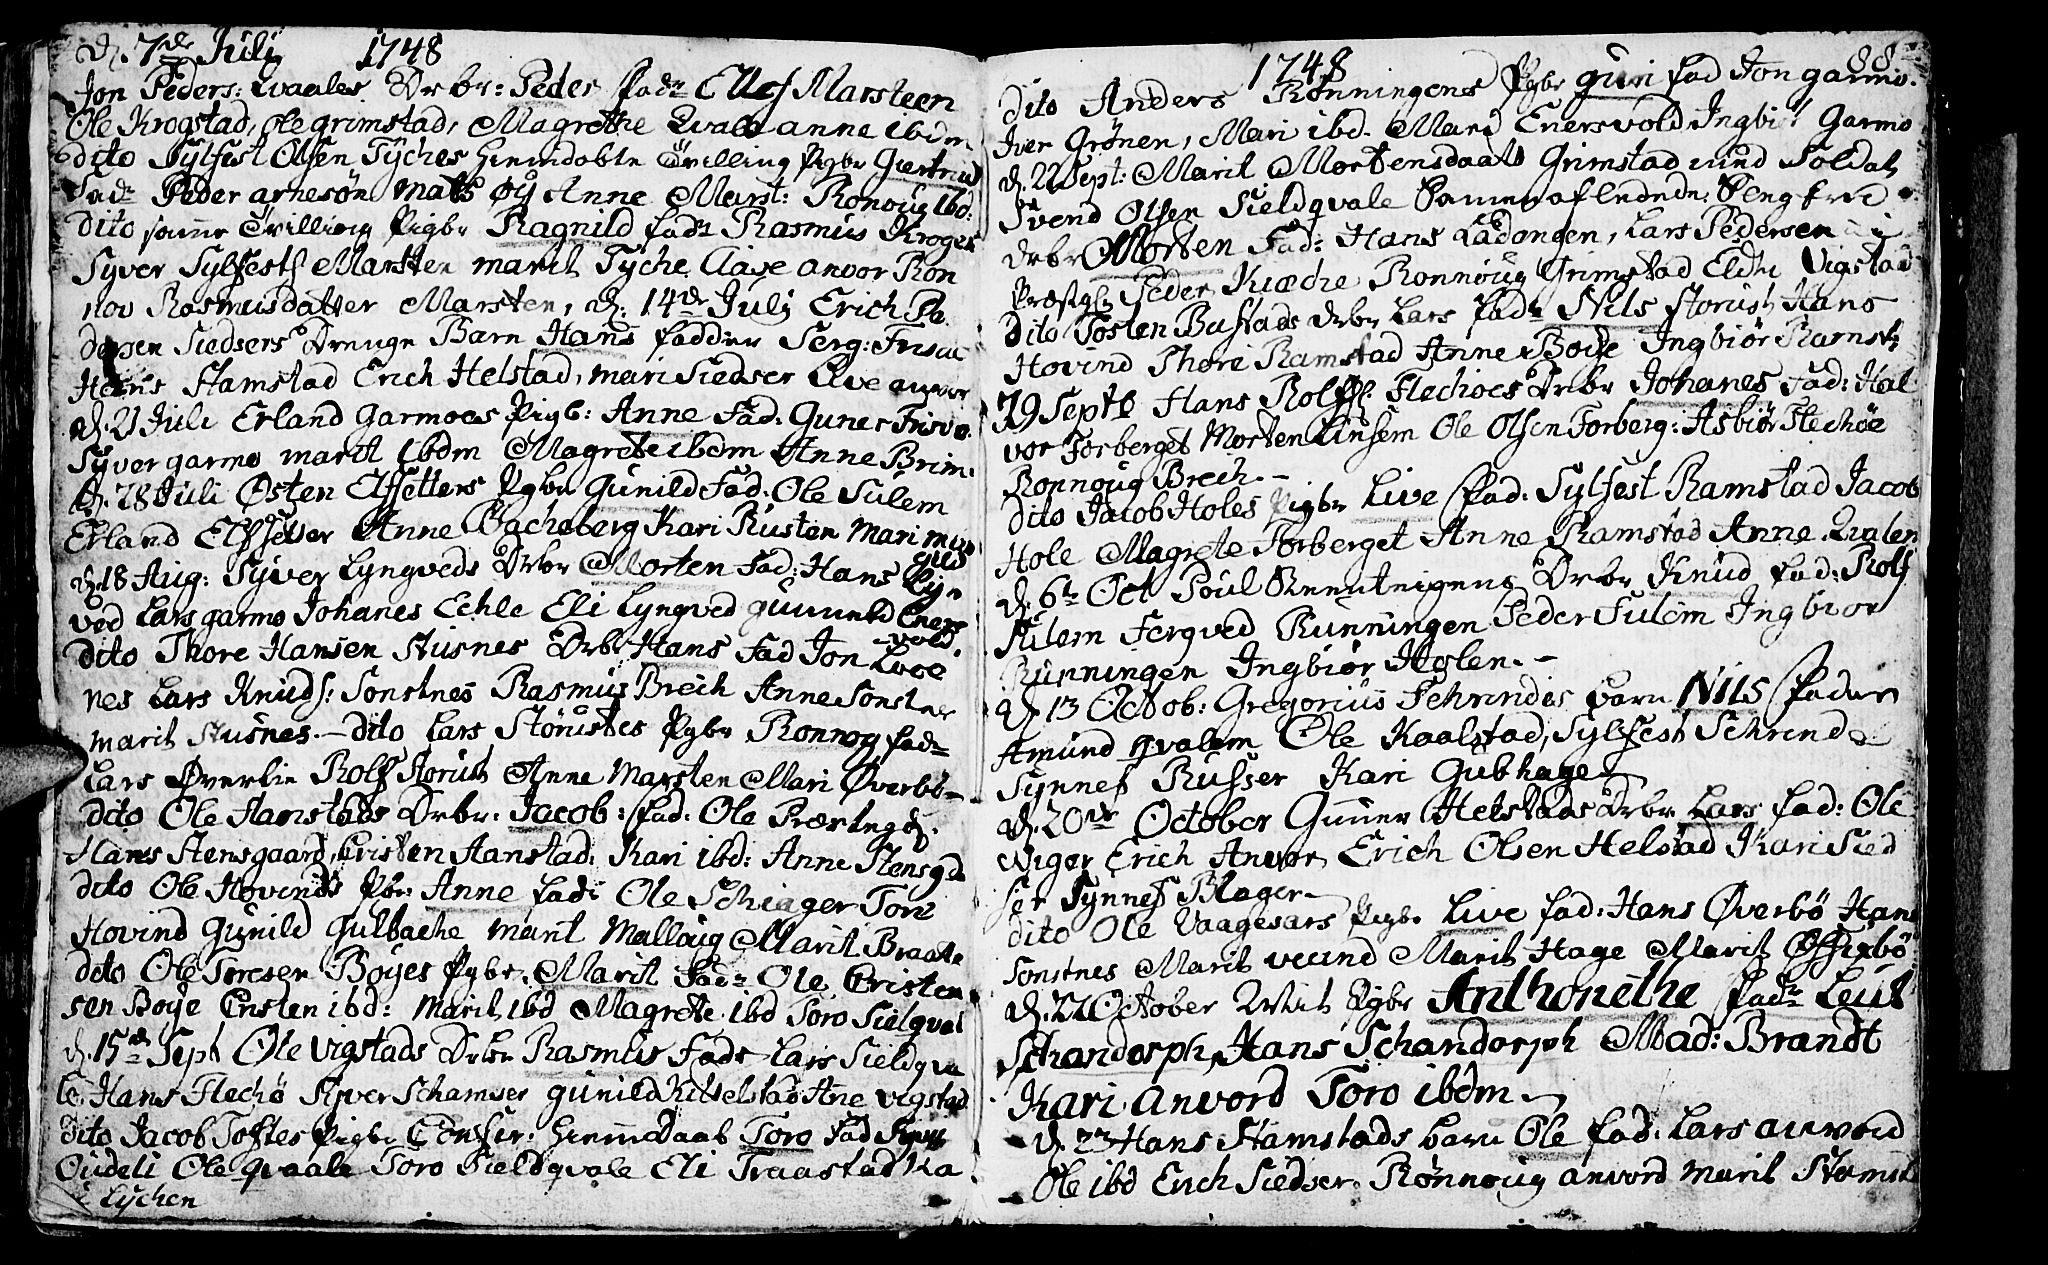 d. 7de Julij 1748
Jon Peders: Qvales Drbr: Peder fad: Ellef Marsteen
Ole Krogstad, Ole grimstad, Magrethe Qvale anne ibdm
dito Sylfest Olsen Tyches hiemdøbte Tvilling Pigbr Giertrud
Fad: Peder arnesøn Mats Øy Anne Marst: Ronoug ibd:
dito samme Tvilling Pigbr Ragnild fad: Rasmus Kroges
Syver Sylfests Marsten marit Tyche Aase anvor Ron
nov Rasmusdatter Marsten, d: 14de Julij Erich Pe
dersen Siedsers Drenge Barn Hans fadder Serg: Frisac
Hans Stamstad Erich Helstad, mari Siedser Live anvor
d. 21 Juli Erland garmoes Pigb: Anne Fad: Guner Frisvo
Syver garmo marit ibdm Magrete ibdm Anne Brim:
d. 28 Juli Østen Elfsetters Pgbr Gunild Fad: Ole Sulem
Erland Elfsetter Anne Bacheberg Kari Rusten Mari
d. 18 Aug: Syver Lyngveds Drbr Morten Fad: Hans Lyn
ved Lars garmo Johanes Echle Eli Lyngved gunneld Eners
vold.
dito Thore Hansen Stusnes Drbr Hans Fad Jon Lvoe
nes Lars Knuds: Sonstnes Rasmus Breck Anne Sonstnes
marit Stusnes. - dito Lars Størustes Pgbr Ronnog fad:
Lars Øverlie Rolf Storust Anne Marsten Mari Øverbö -
dito Ole Aamstads Drbr: Jacob: fad: Ole Præstegd.
Hans Stensgaard, Cristen Aanstad: Kari ibd: Anne Stensgd
dito Ole Hovinds Pbr: Anne fad: Ole Schiager Tore
Hovind Gunild Gulbache marit Mallaug Marit Braate
dito Ole Toresen Boyes Pgbr: Marit Fad: Ole Cristen
sen Boye Ensten ibd: Marit ibd Magrete ibd Toro Sielqval
d. 15de Sept Ole Vigstads Drbr Rasmus Fad: Lars Sieldqva
le Hans Flechö Syver Schamser gunild Kittelstad Ane vigstad
dito Jacob Toftes Pigbr Confir: hiemdaab Toro Fad Syver
Oudeli Ole qvaale Toro Sieldqvale Eli Traastad Ka
Lychen
1748 88
dito Anders Rønningens Pgbr guri fad Jon garmo.
Iver Grønen, Mari ibd. Mari Enersvold Ingbiør Garmo
d. 22 Sept: Marit Mortensdaatr Grimstad und Soldat
Svend Olsen Sieldqvale Sammenaflednede: Seng
Drbr Morten Fad: Hans Ladangen, Lars Pedersen
Præstgd: Peder Kveche Ronnoug Grimstad Eldri Vigstad
dito Tosten Bustads Drbr Lars fad: Nils Storust Hans
Hovind Thore Ramstad Anne Boye Ingbiør Ramst:
29 Septb Hans Rolfs: Flechoes Drbr Johanes Fad: Hal
vor Forberget Morten Linsem Ole Olsen Forberg: Asbiør Flechöe
Ronnoug Brech. -
dito Jacob Holes Pigbr Live fad: Sylfest Ramstad Jacob
Hole Magrete Forberget Anne Ramstad Anne Qvalen
d. 6te Oct Poul Runningens Drbr Knud fad: Rolf
Sulem Fergved Runningen Peder Sulem Ingbior
Runningen Ingbiør Holen. -
d. 13 Octob: Gregorius Schrindes barn Nils fadder
Amund qvalem Ole Kaalstad, Sylfest Schrinde
Synnef Russer Kari Gubhage
d. 20de October Guner Helstads Drbr Lars fad: Ole
Niger Erich Anvor Erich Olsen Helstad Kari Sied
ser Synnef Blager -
dito Ole Vaagesars Pigbr Live fad: Hans Øverbö Hans
Sonstnes Marit veund Marit Hage Marit Øfverbö
d. 27 October Pgbr Anthonethe fad: Leut
Schandorph, Hans Schandorph Mad: Brandt
Kari anvord Toro ibdm
d. Hans Stamstads barn Ole fad: Lars anvord
Ole ibd Erich Siedser Rønnoug anvord Marit Stamst